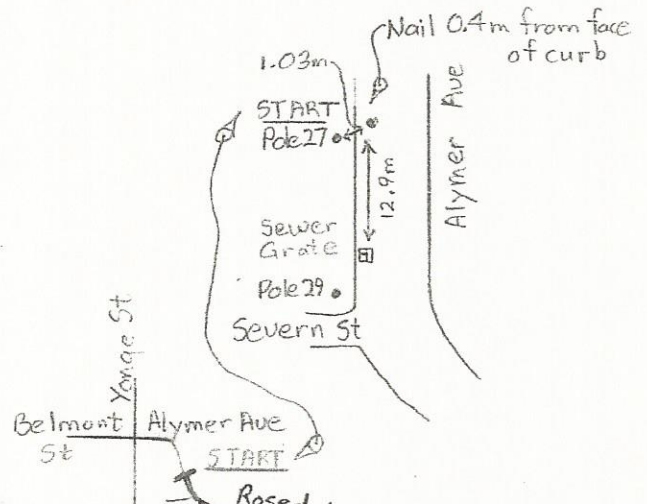 Nail 0.4m from face
of curb
1.03m
START
Pole 27
12.9m
Alymer Ave
Sewer
Grate
Pole 29
Severn St
Yonge St
Belmont
St
Alymer Ave
START